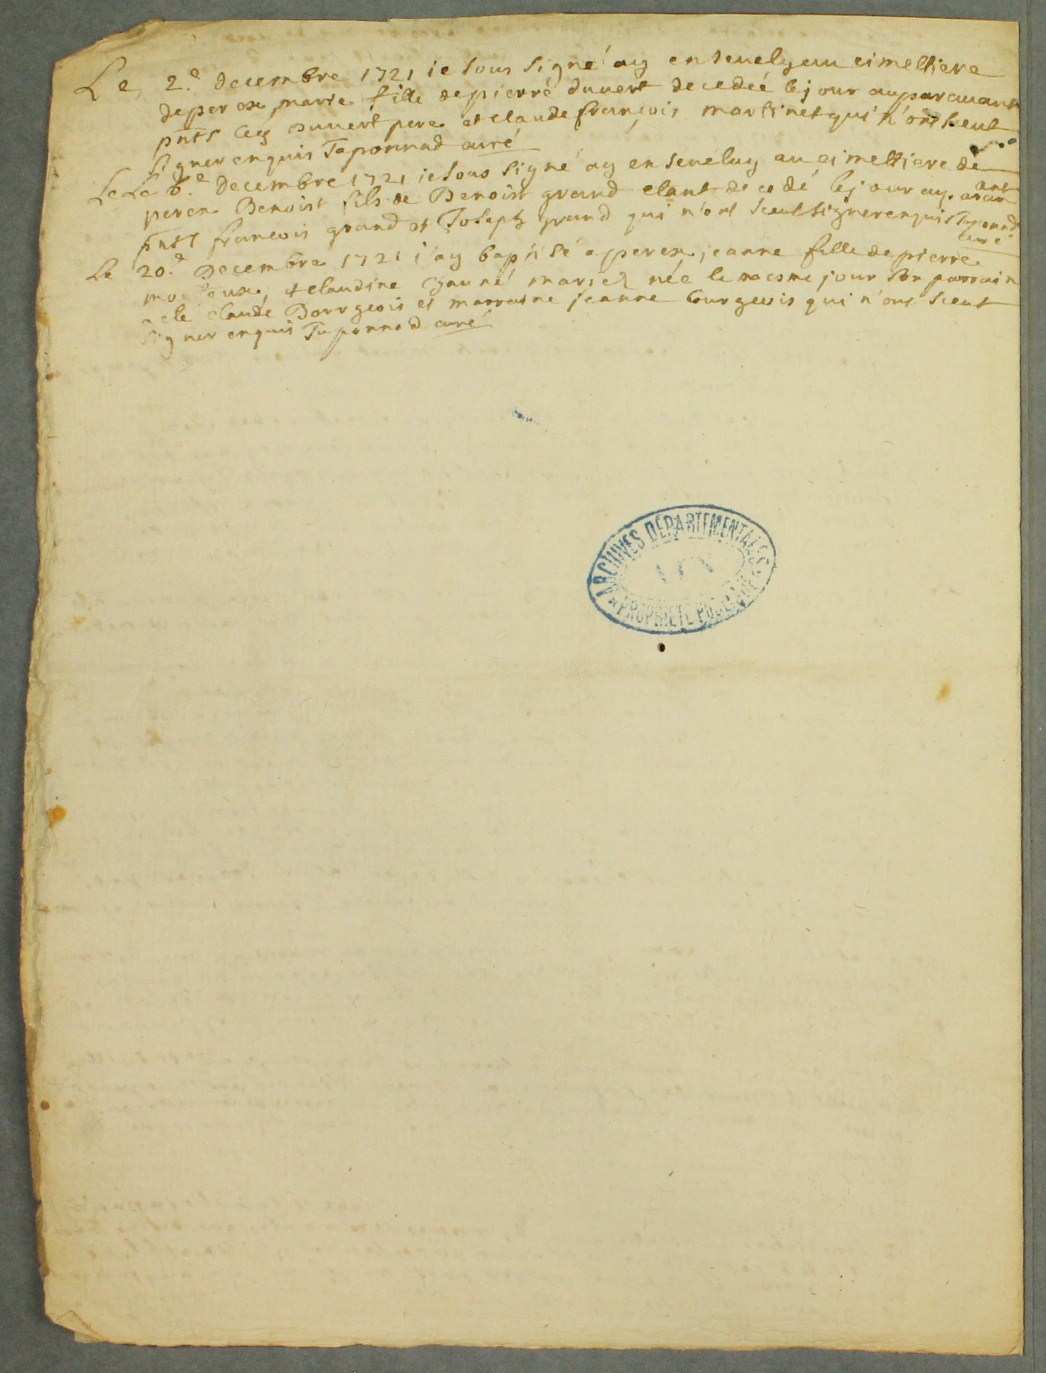 Le 2.e decembre 1721 ie sous signé ay ensevely au cimettiere
de peron marie fille de pierre duvert decedeé le jour auparavant
pnts led duvert pere et claude françois martinet qui n'ont sceut
signer enquis Taponnad curé
Le Le 6.e decembre 1721 ie sous signé ay ensevely au cimettiere de
peron Benoist fils de Benoist grand etant decedé le jour auparavant
pnts francois grand et Joseph grand qui n'ont sceut signer enquis Taponnad
curé
Le 20.e Decembre 1721 j'ay baptisé a peron jeanne fille de pierre
et claudine mariez née le mesme jour son parrain
claude Bourgeois et marraine jeanne bourgeois qui n'ont sceut
signer enquis Taponnad curé
ARCHIVES DÉPARTEMENTALES
AIN
PROPRIÉTÉ PUBLIQUE